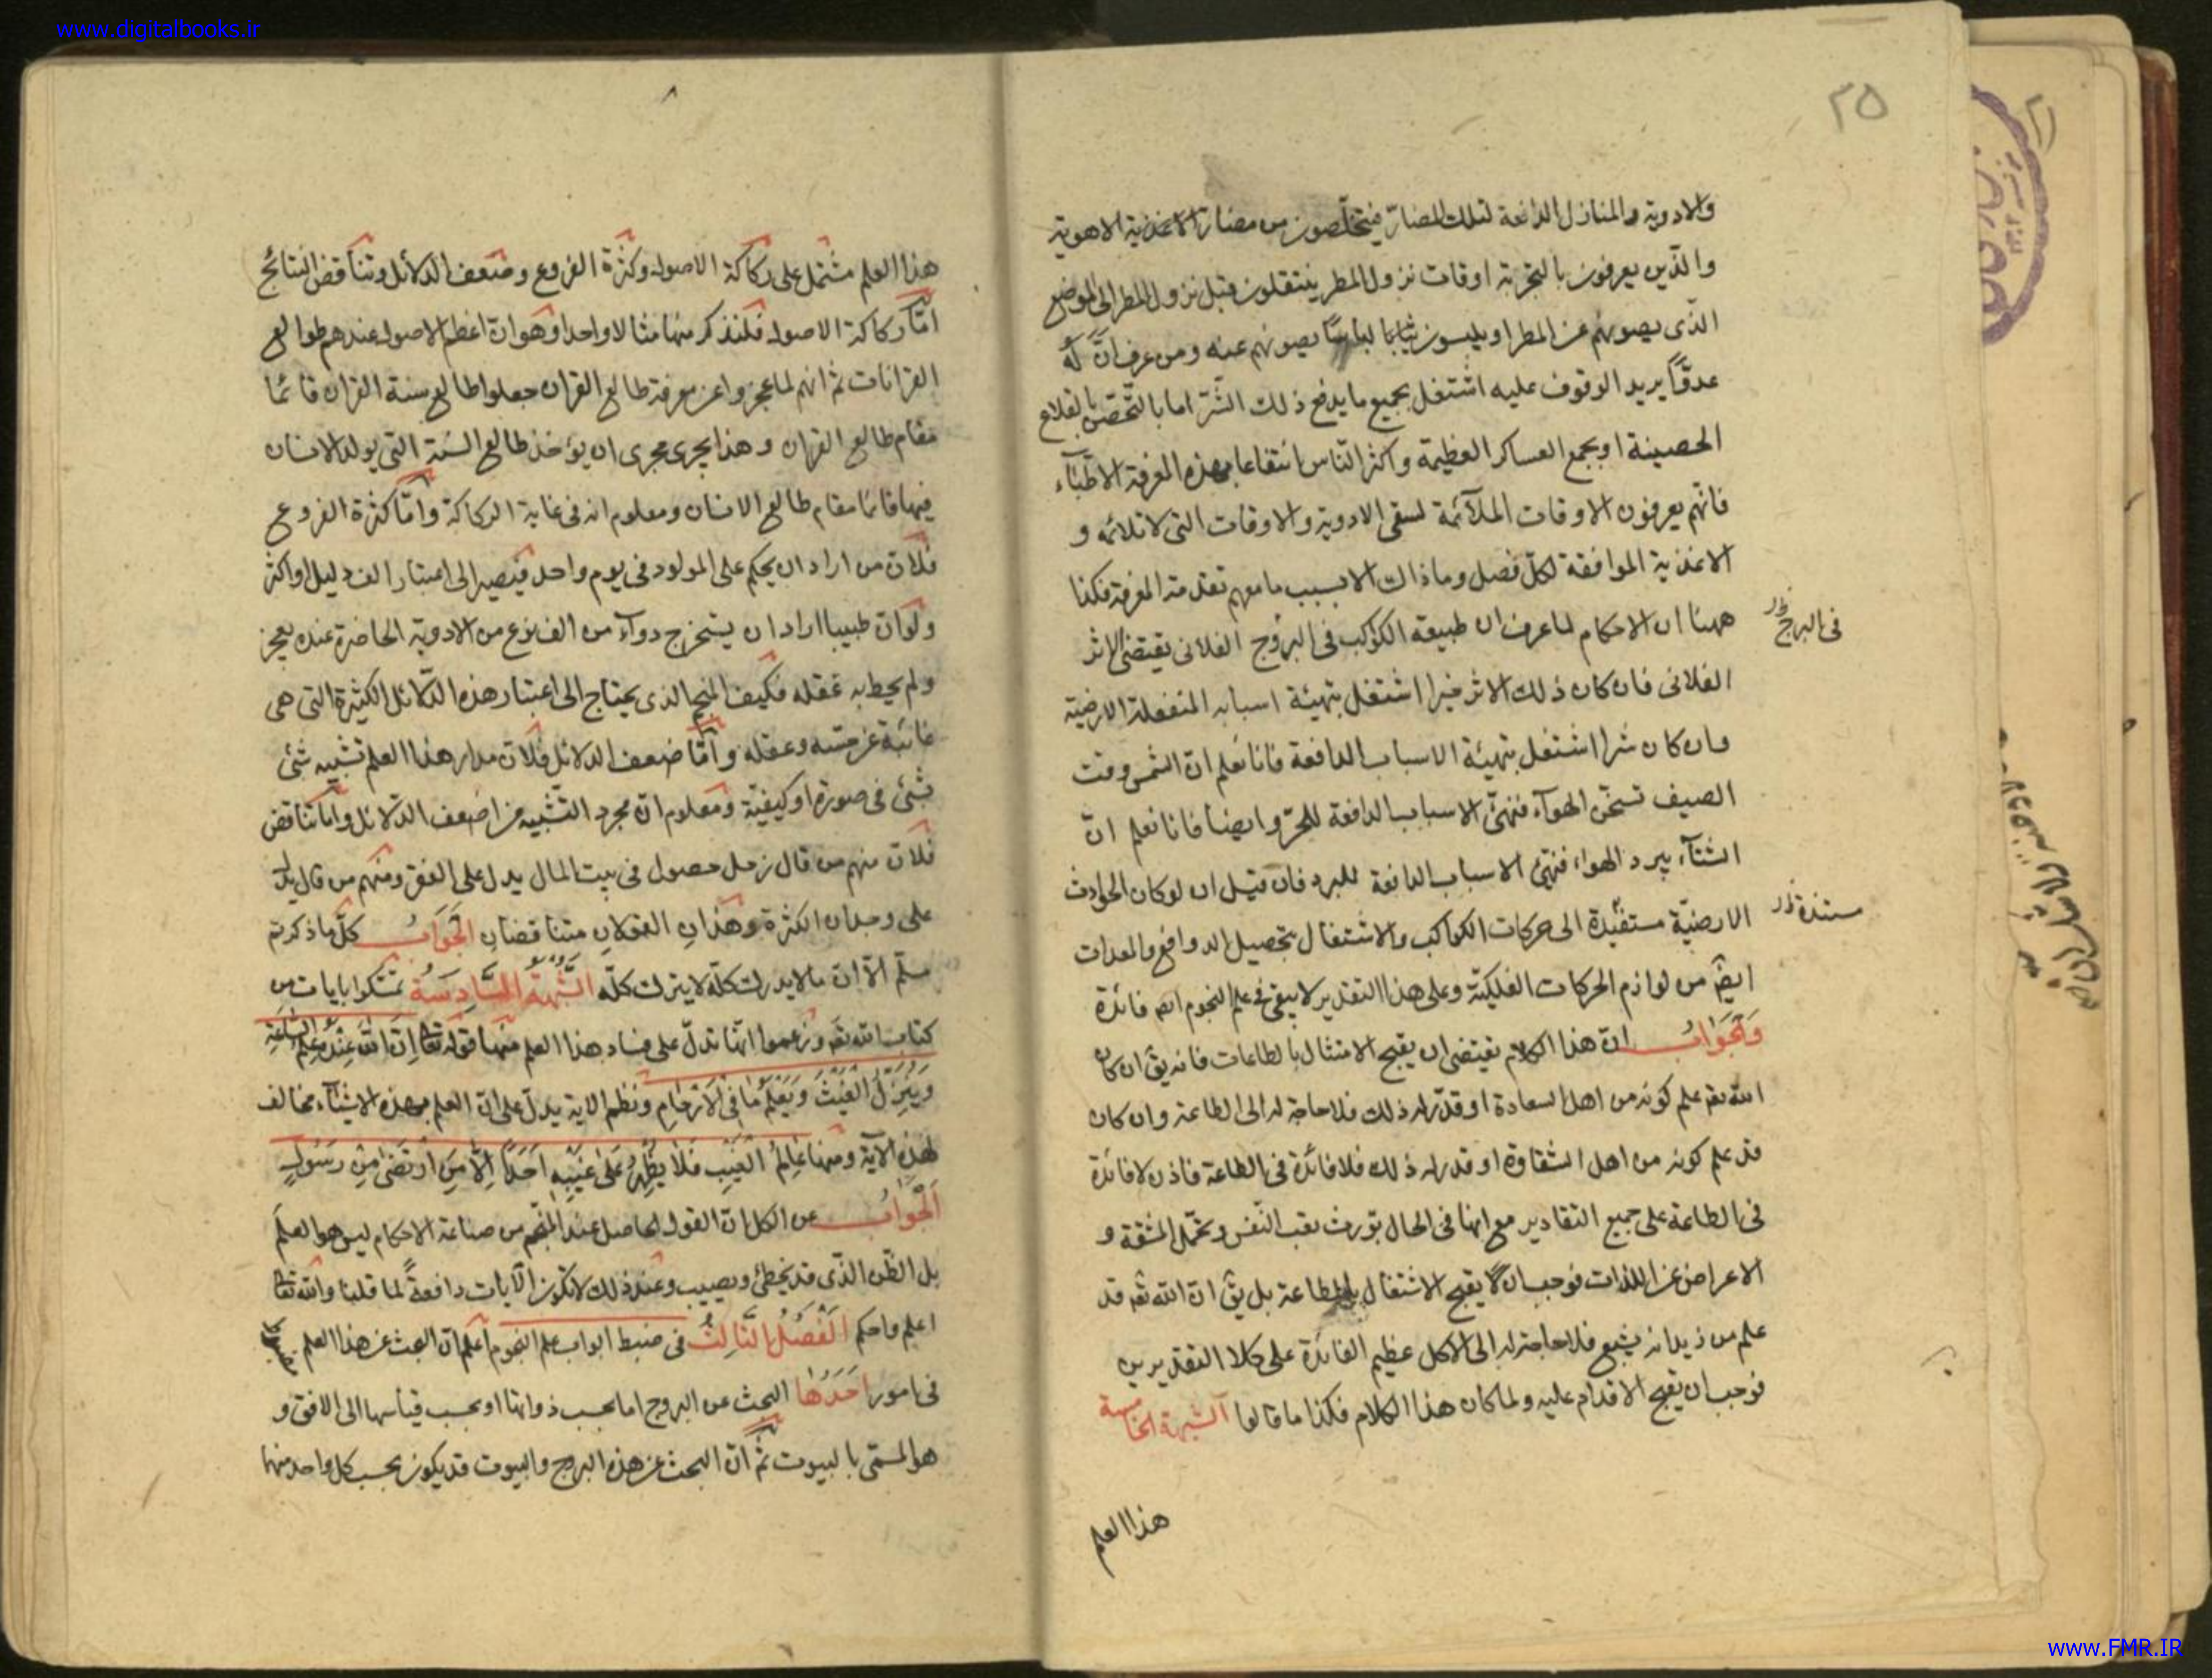 www.digitalbooks.ir
٢٥
والادوية والمنازل الدافعة لتلك المضارّ فيتخلّصون من مضار الاغذية الاهوية
والذين يعرفون بالتجربة اوقات نزول المطر ينتقلون قبل نزول المطر الى المواضع
الذى يصونهم عن المطر او يلبسون ثيابا لباسًا يصونهم عنه ومن عرف انّ له
عدوًّا يريد الوقوف عليه اشتغل بجميع ما يدفع ذلك الشّر اما بالتّحصّن بالقلاع
الحصينة او بجمع العساكر العظيمة واكثر النّاس انتفاعا بهذه المعرفة الاطّبآء
فانّهم يعرفون الاوقات الملآئمة لسقى الادوية والاوقات التى لا تلائمه و
الاغذية الموافقة لكلّ فصل وما ذاك الا بسبب ما معهم تقدمة المعرفة فكذا
ههنا ان الاحكام لما عرف ان طبيعة الكوكب فى البروج الفلانى يقتضى الاثر
فى البرج
الفلانى فان كان ذلك الاثر خيرا اشتغل بتهيئة اسبابه المنفعلة الارضية
وان كان شرا اشتغل بتهيئة الاسباب الدافعة فانا نعلم انّ الشمس وقت
الصيف تسخّن الهوآء فنهئ الاسباب الدافعة للحرّ وايضا فانا نعلم انّ
الشتآء يبرد الهواء فنهئ الاسباب الدافعة للبرد فان قيل ان لو كان الحوادث
الارضيّة مستفيدة الى حركات الكواكب والاشتغال بتحصيل الدوافع والمعدات
مستندة
ايضً من لوازم الحركات الفلكيّة وعلى هذا التقدير لا يبقى فى علم النجوم فائدة
وَالجَوَابُ انّ هذا الكلام يقتضى ان يقبح الامتثال بالطاعات فانه يقٓ ان كان
الله تعٓ علم كونه من اهل السعادة او قدّر له ذلك فلا حاجة له الى الطاعة وان كان
قد علم كونه من اهل الشقاوة او قدر له ذلك فلا فائدة فى الطاعة فاذن لا فائدة
فى الطاعة على جميع التقادير مع انها فى الحال تورث تعب النّفس وتحمّل المشقة و
الاعراض عن اللذات فوجب ان لا يقبح الاشتغال بالطاعة بل يقٓ ان الله تعٓ قد
علم من زيد انه يشبع فلا حاجة له الى الاكل عظيم الفائدة على كلا التقديرين
فوجب ان يقبح الاقدام عليه ولما كان هذا الكلام فكذا ما قالوا الشبهة الخامسة
هذا العلم
٨
هذا العلم مشتمل على ركاكة الاصول وكثرة الفروع وضعف الدلائل وتناقض النتائج
امّا ركاكة الاصول فلنذكر منها مثالا واحدا وهو انّ اعظم الاصول عندهم طوالع
القرانات ثم انهم لما عجزوا عن معرفة طالع القران جعلوا طالع سنة القران قائما
مقام طالع القران وهذا يجرى مجرى ان يؤخذ طالع السّنة التى يولد الانسان
فيها قائما مقام طالع الانسان ومعلوم انه فى غاية الركاكة وامّا كثرة الفروع
فلانّ من اراد ان يحكم على المولود فى يوم واحد فيصير الى اعتبار الف دليل او اكثر
ولو انّ طبيبا اراد ان يستخرج دوآء من الف نوع من الادوية الحاضرة عنده يعجز
ولم يحط به عقله فكيف المنجم الذى يحتاج الى اعتبار هذه الدّلائل الكثيرة التى هى
غائبة عن حسّه وعقله وامّا ضعف الدلائل فلانّ مدار هذا العلم تشبيه شئ
بشئ فى صورة او كيفيّة ومعلوم انّ مجرد التشبيه من اضعف الدّلائل وامّا تناقض
فلانّ منهم من قال زحل حصول فى بيت المال يدل على الفقر ومنهم من قال يدل
على وجدان الكثرة وهذانِ القولان متناقضان الجَوَابُ كلّ ما ذكرتم
مسلّم الّا انّ ما لا يدرك كلّه لا يترك كلّه الشُّبهَةُ السَّادِسَةُ تمسّكوا بايات من
كتاب الله تعٓ وزعموا انّها تدلّ على فساد هذا العلم منها قوله تعٓ اِنَّ اللهَ عِنْدَهُ عِلْمُ السَّاعَةِ
وَيُنَزِّلُ الْغَيْثَ وَيَعْلَمُ مَا فِى الْاَرْحَامِ ونظم الاية يدلّ على انّ العلم بهذه الاشيآء مخالف
لهذه الآية ومنها عَالِمُ الغَيْبِ فَلَا يُظْهِرُ عَلىٰ غَيْبِهِ اَحَدًا اِلَّا مَنِ ارْتَضىٰ مِنْ رَسُولٍ
اَلجَوَابُ عن الكل انّ القول الحاصل عند المنجّم من صناعة الاحكام ليس هو العلم
بل الظّن الذى قد يخطئ ويصيب وعند ذلك لا تكون الآيات دافعةً لما قلنا والله تعالى
اعلم واحكم الفَصْلُ الثَّالِثُ فى ضبط ابواب علم النجوم اعلم انّ البحث عن هذا العلم
فى امور اَحَدُهَا البحث عن البروج اما بحسب ذواتها او بحسب قياسها الى الافق و
هو المسمّى بالبيوت ثمّ انّ البحث عن هذه البروج والبيوت قد يكون بحسب كل واحد منها
www.FMR.IR